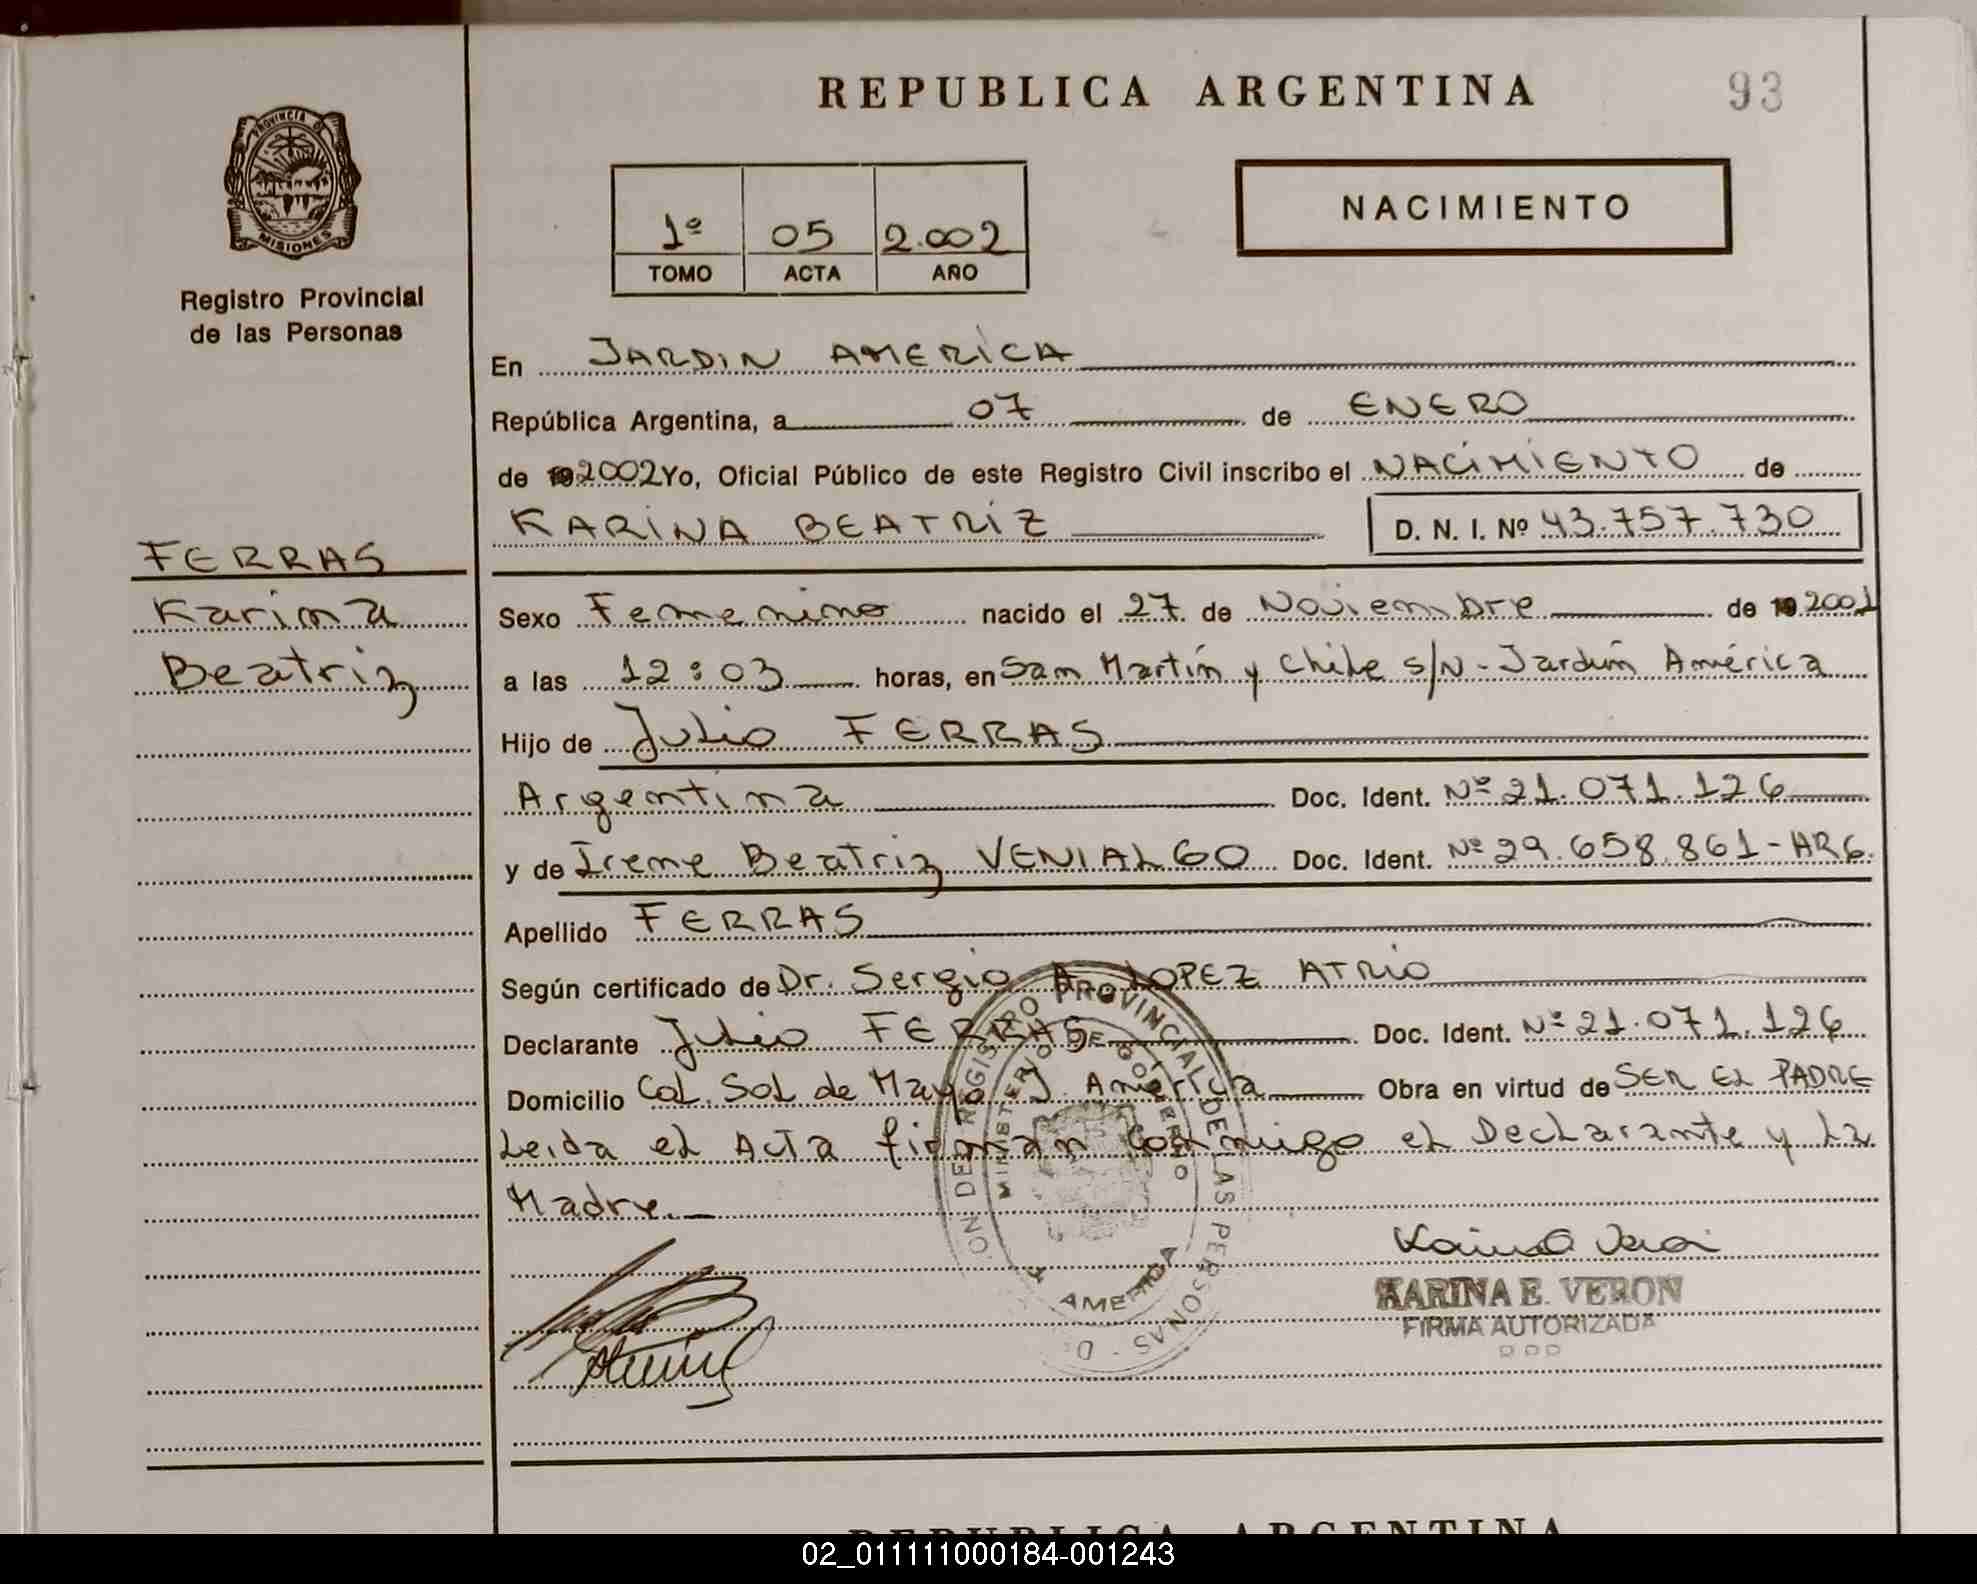 REPUBLICA ARGENTINA
93
PROVINCIA DE
MISIONES
Registro Provincial
de las Personas
1º 05 2.002
TOMO ACTA AÑO
NACIMIENTO
En JARDIN AMERICA
República Argentina, a 07 de ENERO
de 19 2002 Yo, Oficial Público de este Registro Civil inscribo el NACIMIENTO de
KARINA BEATRIZ D. N. I. Nº 43.757.730
FERRAS
Karina
Beatriz
Sexo Femenino nacido el 27 de Noviembre de 19 2001
a las 12:03 horas, en San Martín y Chile s/N - Jardín América
Hijo de Julio FERRAS
Argentina Doc. Ident. Nº 21.071.126
y de Irene Beatriz VENIALGO Doc. Ident. Nº 29.658.861-ARG.
Apellido FERRAS
Según certificado de Dr. Sergio A. LOPEZ ATRIO
Declarante Julio FERRAS Doc. Ident. Nº 21.071.126
Domicilio Col. Sol de Mayo J. América Obra en virtud de SER EL PADRE
Leida el Acta firman conmigo el Declarante y La
Madre.
REGISTRO PROVINCIAL DE LAS PERSONAS
MINISTERIO DE GOBIERNO
AMERICA
KARINA E. VERON
FIRMA AUTORIZADA
REPUBLICA ARGENTINA
02_011111000184-001243